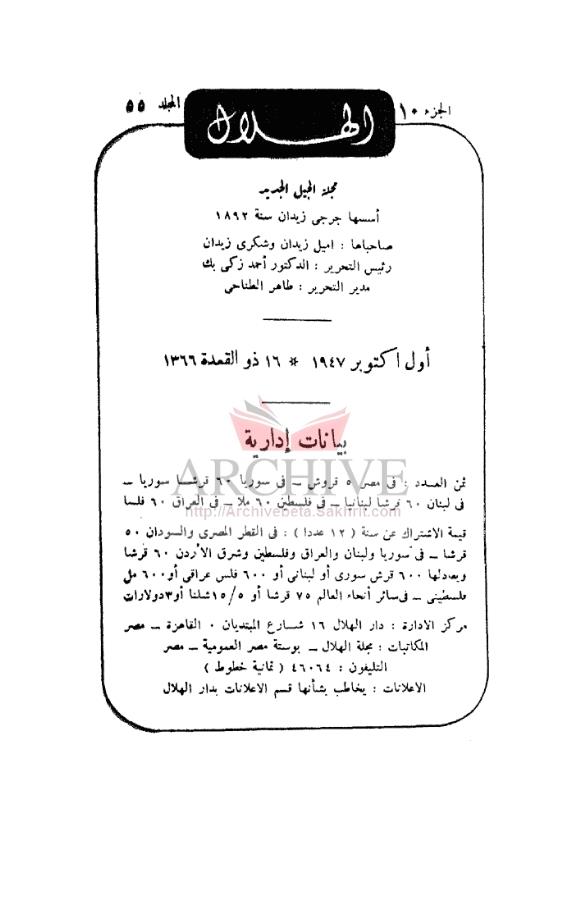 الجزء ١٠
الهلال
المجلد ٥٥
مجلة الجيل الجديد
أسسها جرجى زيدان سنة ١٨٩٢
صاحباها : اميل زيدان وشكرى زيدان
رئيس التحرير : الدكتور أحمد زكى بك
مدير التحرير : طاهر الطناحى
أول اكتوبر ١٩٤٧ * ١٦ ذو القعدة ١٣٦٦
بيانات إدارية
ARCHIVE
http://Archivebeta.Sakhrit.com
ثمن العدد : فى مصر ٥ قروش – فى سوريا ٦٠ قرشا سوريا –
فى لبنان ٦٠ قرشا لبنانيا – فى فلسطين ٦٠ ملا – فى العراق ٦٠ فلسا
قيمة الاشتراك عن سنة ( ١٢ عددا ) : فى القطر المصرى والسودان ٥٠
قرشا – فى سوريا ولبنان والعراق وفلسطين وشرق الأردن ٦٠ قرشا
ويعادلها ٦٠٠ قرش سورى أو لبنانى أو ٦٠٠ فلس عراقى أو ٦٠٠ مل
فلسطينى – فى سائر أنحاء العالم ٧٥ قرشا أو ١٥/٥ شلنا أو ٣ دولارات
مركز الادارة : دار الهلال ١٦ شارع المبتديان . القاهرة – مصر
المكاتبات : مجلة الهلال – بوستة مصر العمومية – مصر
التليفون : ٤٦٠٦٤ ( ثمانية خطوط )
الاعلانات : يخاطب بشأنها قسم الاعلانات بدار الهلال